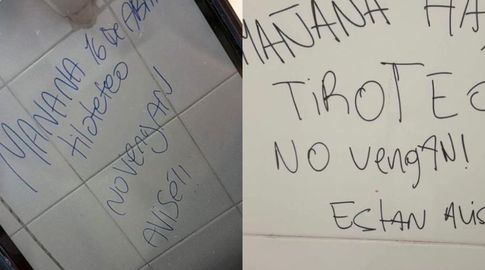 MAÑANA 16 DE ABRIL
tiloteteo
NO VENGAN
AVISÉ!!
MAÑANA HA
TIROTEO
NO VENGAN!
ESTAN AVIS